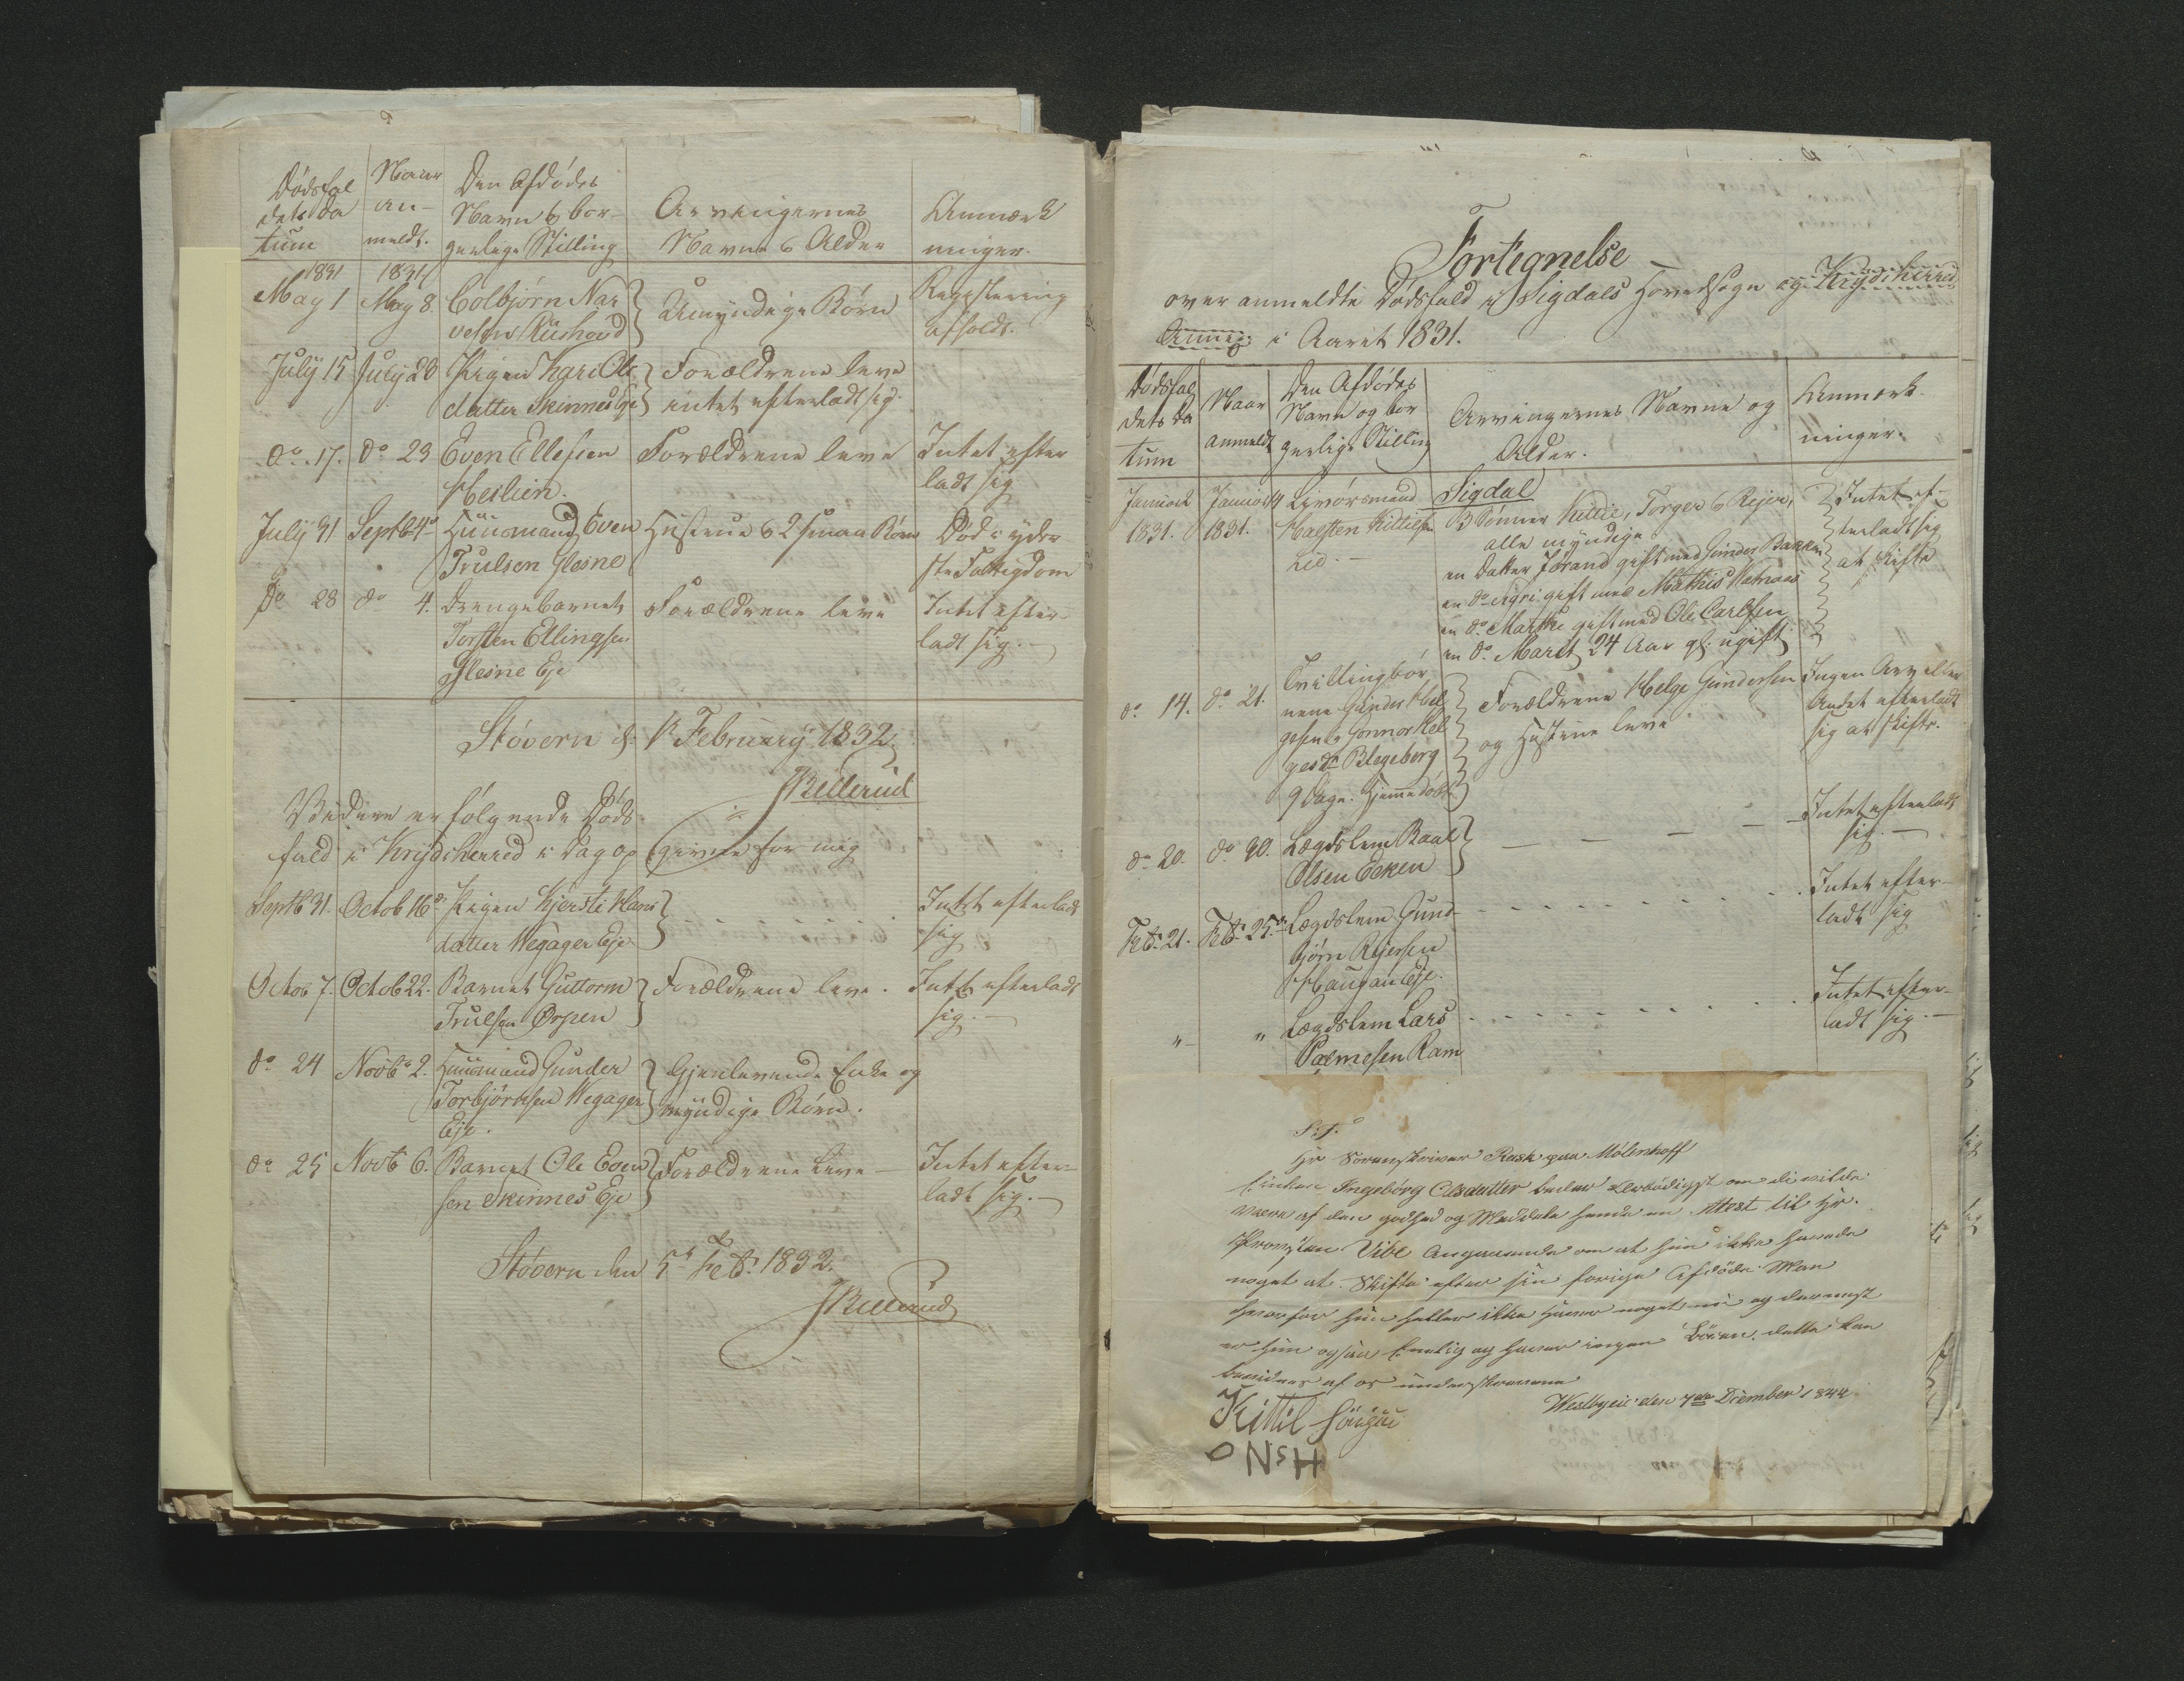 Dødsfal
dets da
tum
Naar
an-
meldt.
Den Afdødes
Navn & bor-
gerlige Stilling
Arvingernes
Navne & Alder
Anmærk
ninger.
1831
May 1
1831
May 8.
Colbjørn Nar
vesen Rushoud
Umyndige Børn
Registering
afholdt.
July 15
July 20
Pigen Kari Ols
datter Skinnes Eje
Forældrene leve
intet efterladt sig.
do. 17.
do 23
Even Ellefsen
Heilien.
Forældrene leve
Intet efter
ladt sig
July 31
Septb 4de
Huusmand Even
Trulsen Glesne
Hustrue & 2 smaa Børn
Død i yder
ste Fattigdom
do 28
do 4.
Drengebarnet
Torsten Ellingsen
Glesne Eje
Forældrene leve
Intet efter-
ladt sig.
Støvern d: 1ste February 1832.
JKillerud
Videre er følgende Døds
fald i Krydsherred i Dag op
givne for mig
Septb 31.
Octob 16de
Pigen Kjersti Hans
datter Wegager Eje
Intet efterladt
sig
Octob 7.
Octob 22.
Barnet Guttorm
Trulsen Ørpen
Forældrene leve.
Intet efterladt
sig.
do 24
Novbr 2.
Huusmand Gunder
Torbjørnsen Wegager
Eje.
Gjenlevende Enke og
myndige Børn.
do 25
Novb 6.
Barnet Ole Even
sen Skinnes Eje
Forældrene Leve
Intet efter-
ladt sig.
Støvern den 5te Feb. 1832.
JKillerud
Fortegnelse
over anmeldte Dødsfald i Sigdals Hovedsogn og Krydsherred
Annex i Aaret 1831.
Dødsfal
dets da
tum
Naar
anmeldt
Den Afdødes
Navn og bor
gerlige Stilling
Arvingernes Navne og
Alder.
Anmærk-
ninger.
Sigdal
Januar
1831.
Januar 4
1831.
Livørsmand
Halsten Kittilsen
Lid.
3 Sønner Kittil, Torger & Rejer,
alle myndige
en Datter Jørand gift med Gunder Bakken
en do Sigri gift med Mathis
en do. Marthe gift med Ole Carlsen
en do. Marit 24 Aar gl: ugift
Intet ef-
terladt sig
at skifte
do 14.
do 21.
Tvillingbør
nene Gunder Hel
gesen & Gonnor Hel
gesdr Blegeberg
9 Dage. Hjemmedøbt
Forældrene Helge Gundersen
og Hustrue leve
Ingen Arv eller
Andet efterladt
sig at skifte.
do 20.
do 30.
Lægdslem Baal
Olsen Eeken
Intet efterladt
sig.
Feb. 21.
Feb. 25de
Lægdslem Gund-
bjørn Rejersen
Haugan Eje.
Intet efter-
ladt sig
"
"
Lægdslem Lars
Palmesen Ram
Intet efter-
ladt sig.
S. T.
Hr Sorenskriver Rask paa Mølenhoff
Enken Ingebørg Olsdatter beder Ærbødigst om di vilde
være af den godhed og Meddele hende en Attest til Hr.
Provsten Vibe Angaaende om at hun ikke havde
noget at Skifte efter sin forige Afdøde Man
hvorfor hun heller ikke haver noget nu og dernæst
er hun ogsaa Enelig og haver ingen Børen. dette kan
bevidnes af os underskrevene
Westbyeie den 7de Desember 1844
Kittil
HSNO